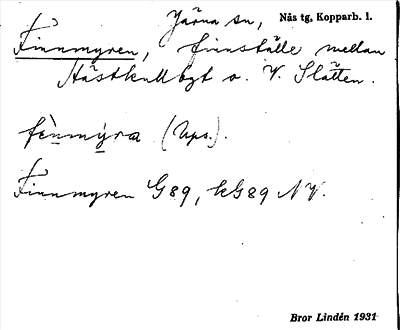 Järna sn, Nås tg, Kopparb. l.
Finnmyren, finnställe mellan
Hästkullbgt o. V. Slätten.
fènmýra (Ups.).
Finnmyren G89, kG89 NV.
Bror Lindén 1931